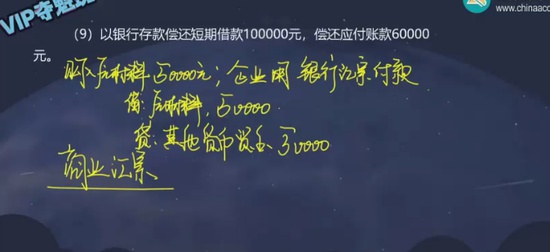 VIP夺魁班
www.chinaacc
(9)以银行存款偿还短期借款100000元，偿还应付账款60000
元。
购入原材料50000元；企业用银行汇票付款
借：原材料，50000
贷：其他货币资金 50000
商业汇票